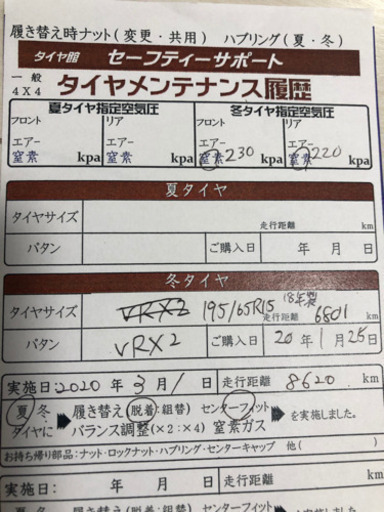 履き替え時ナット(変更・共用) ハブリング(夏・冬)
タイヤ館 セーフティーサポート
一般
4X4 タイヤメンテナンス履歴
夏タイヤ指定空気圧 冬タイヤ指定空気圧
フロント リア フロント リア
エアー エアー エアー エアー
窒素 kpa 窒素 kpa 窒素 230 kpa 窒素 220 kpa
夏タイヤ
タイヤサイズ 走行距離 km
パタン ご購入日 年 月 日
冬タイヤ
タイヤサイズ VRX2 195/65R15 18年製 走行距離 6801 km
パタン VRX2 ご購入日 20年 1月 25日
実施日:2020年 3月 1日 走行距離 8620 km
夏 冬 履き替え(脱着:組替) センターフィット
タイヤに バランス調整(×2:×4) 窒素ガス を実施しました。
お持ち帰り部品:ナット・ロックナット・ハブリング・センターキャップ 他(
実施日: 年 月 日 走行距離 km
夏 冬 履き替え(脱着:組替) センターフィット